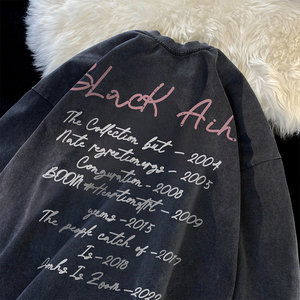 BLacK Aih
The Collection but - 2004
Nate regreetionorgs - 2005
Conguration - 2008
BOOM #Heartionsftt - 2009
yeems - 2015
The people catch of - 2017
Is - 2018
Zoom - 2022